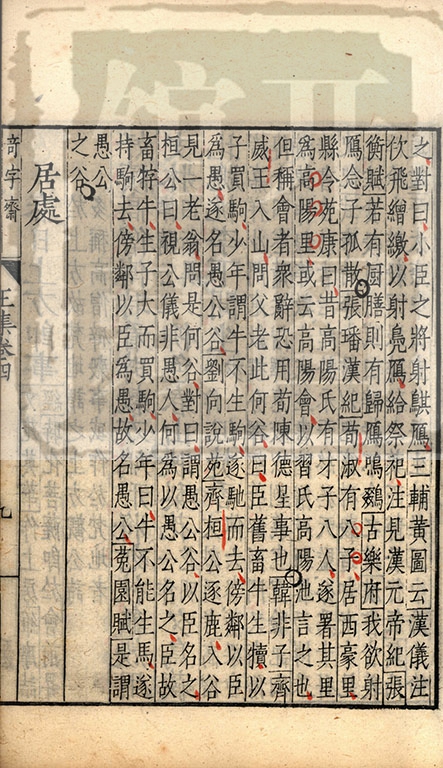 之對曰小臣之將射鶀鴈三輔黃圖云漢儀注
佽飛矰繳以射鳧鴈給祭祀注見漢元帝紀張
衡賦若有厨膳則有歸鴈鳴鵽古樂府我欲射
鴈念子孤散張璠漢紀荀淑有八子居西豪里
縣令苑康曰昔高陽氏有才子八人遂署其里
爲高陽里或云高陽會以習氏高陽池言之也
但稱會者衆辭恐用荀陳德星事也韓非子齊
威王入山問父老此何谷曰臣舊畜牛生犢以
子買駒少年謂牛不生駒遂馳而去傍鄰以臣
爲愚遂名愚公谷劉向說苑齊桓公逐鹿入谷
見一老翁問是何谷對曰謂愚公谷以臣名之
桓公曰視公儀非愚人何爲以愚公名之臣故
畜牸牛生子大而買駒少年曰牛不能生馬遂
持駒去傍鄰以臣爲愚故名愚公菟園賦是謂
愚公
之谷
居處
奇字齋
王集卷四
九